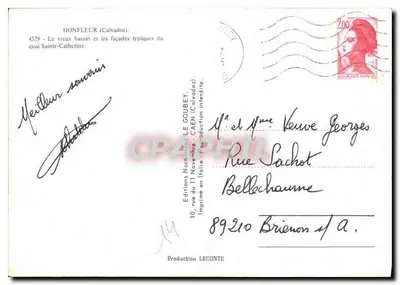 HONFLEUR (Calvados).
4529 - Le vieux bassin et les façades typiques du
quai Sainte-Catherine.
Meilleur souvenir
Editions Normandes LE GOUBEY.
10, rue du 11 Novembre. CAEN (Calvados).
Imprimé en Italie - Reproduction interdite.
2,00
Mr et Mme Veuve Georges
Rue Sachot
Bellechaume
89210 Brienon s/A.
14
Production LECONTE